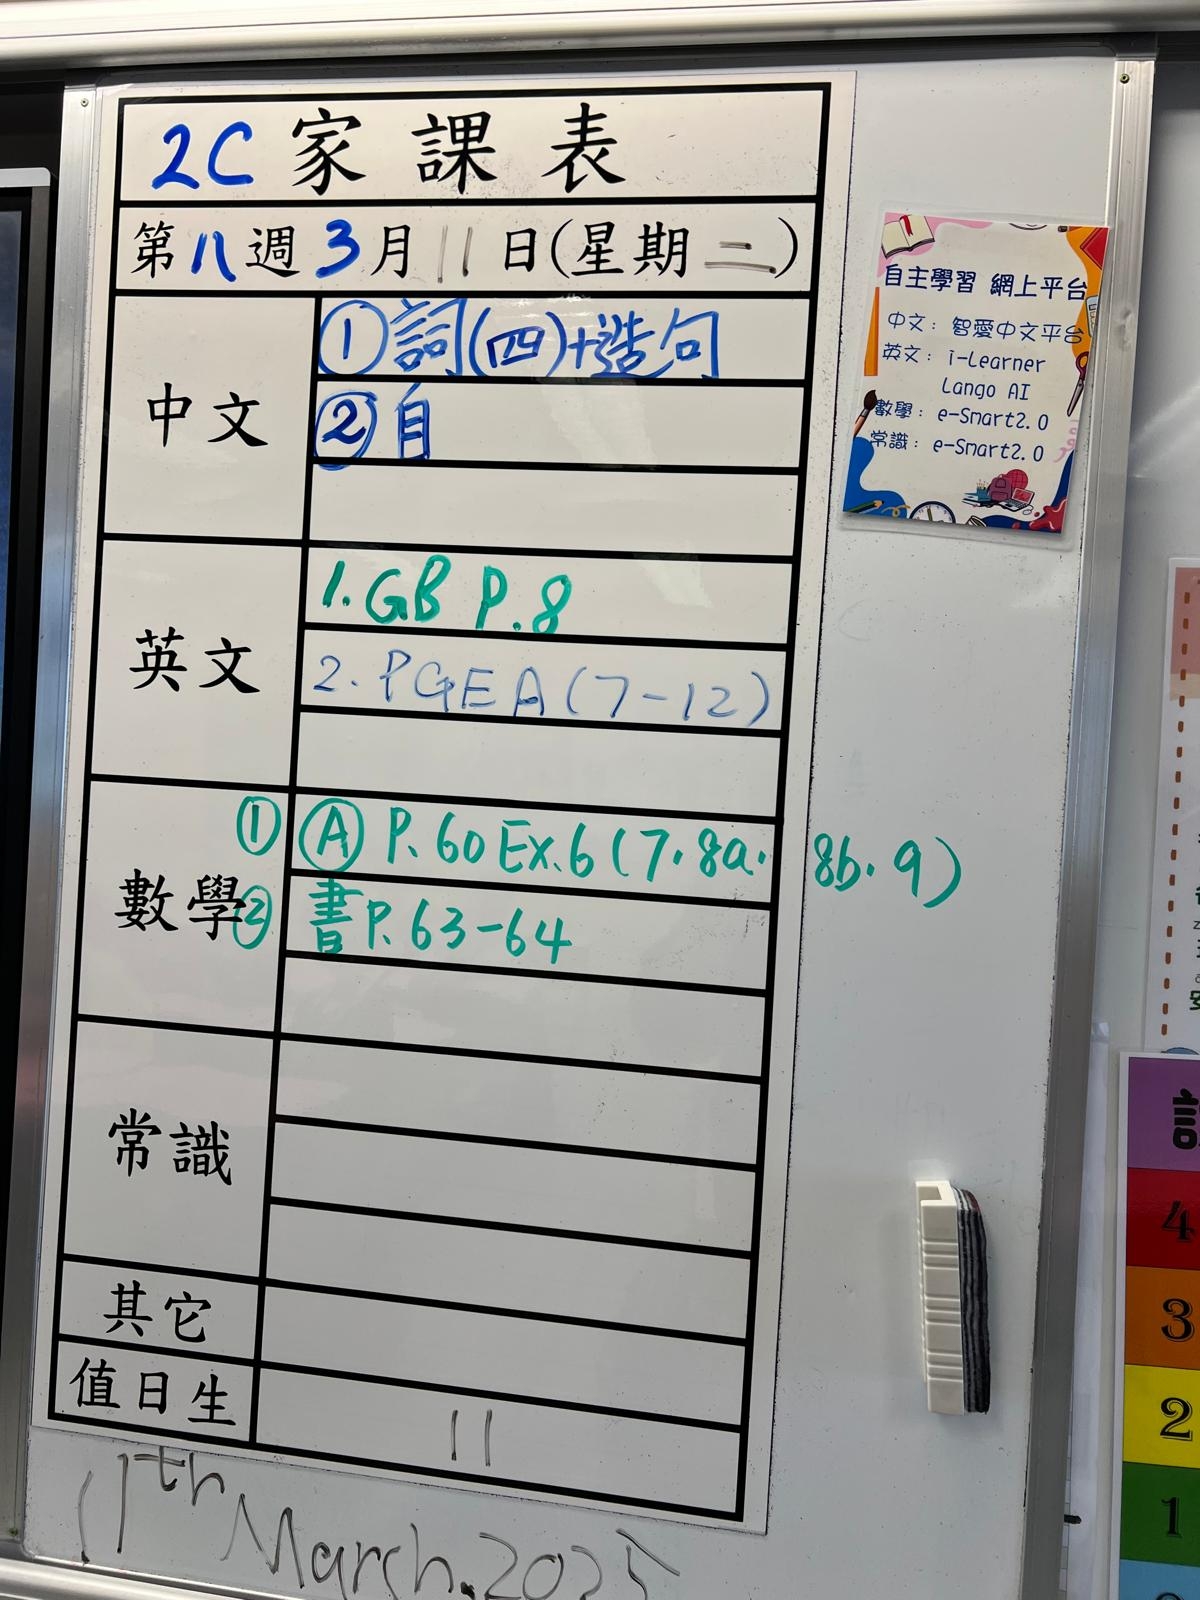 2C 家課表
第八週 3月11日(星期二)
中文
①詞(四)+造句
②自
英文
1. GB P.8
2. PGEA(7-12)
數學
① Ⓐ P.60 Ex.6(7.8a. 8b.9)
② 書P.63-64
常識
其它
值日生
11
11th March.2025
自主學習 網上平台
中文：智愛中文平台
英文：i-Learner
Lango AI
數學：e-Smart2.0
常識：e-Smart2.0
4
3
2
1